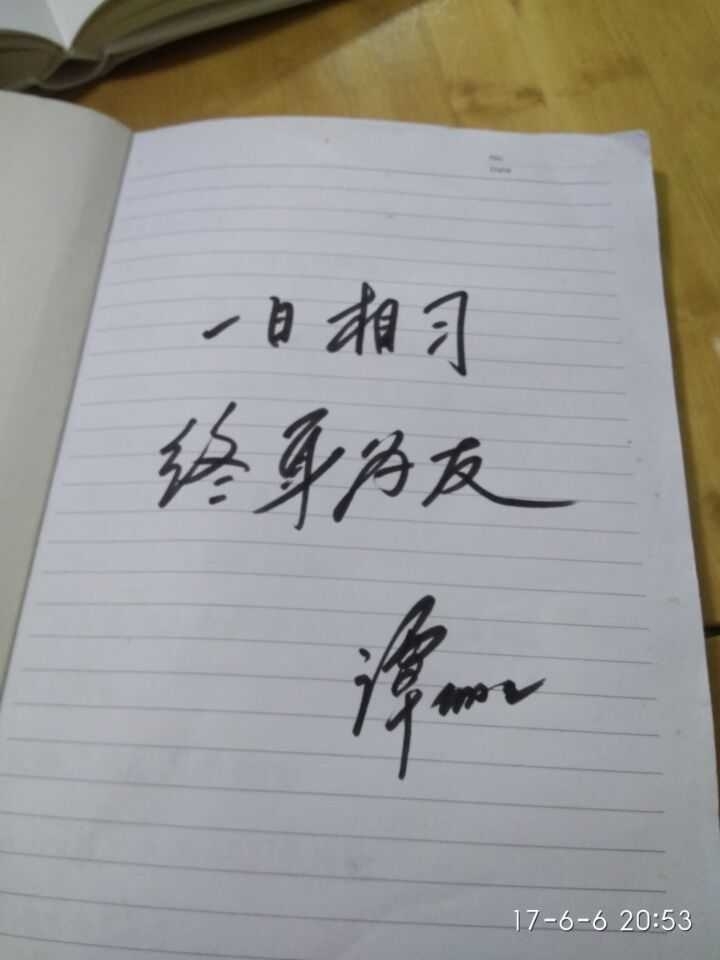 No.
Date
一日相习
终身为友
谭
17-6-6 20:53